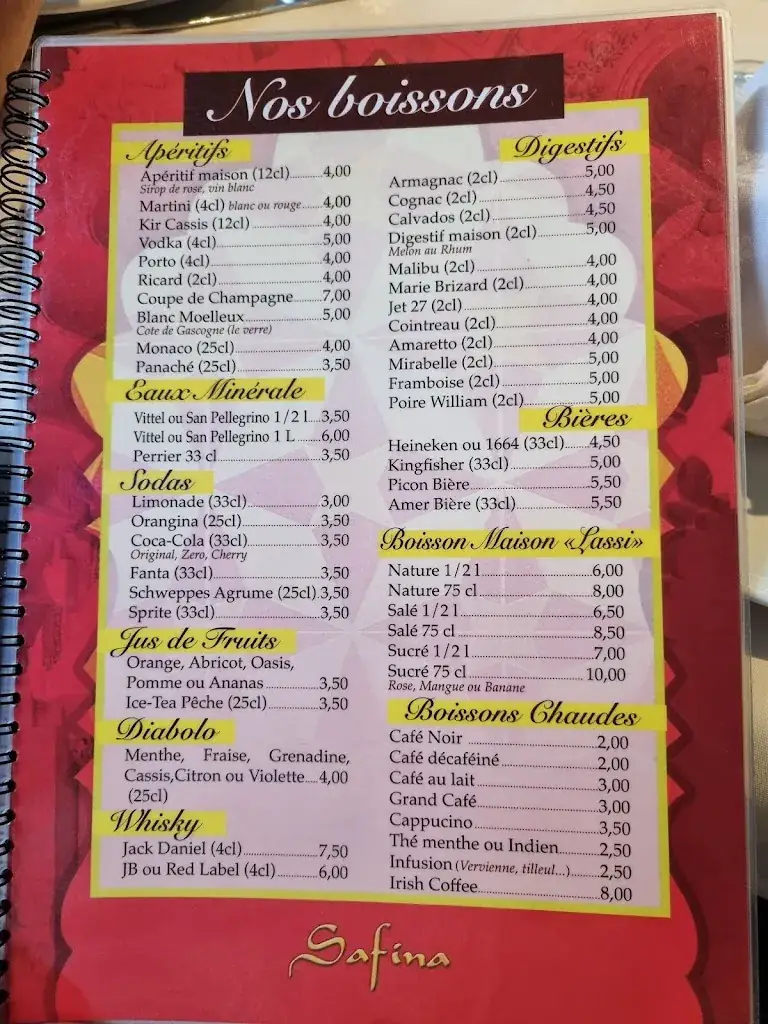 Nos boissons
Apéritifs
Apéritif maison (12cl)..........4,00
Sirop de rose, vin blanc
Martini (4cl) blanc ou rouge.....4,00
Kir Cassis (12cl)..........4,00
Vodka (4cl)..........5,00
Porto (4cl)..........4,00
Ricard (2cl)..........4,00
Coupe de Champagne..........7,00
Blanc Moelleux..........5,00
Cote de Gascogne (le verre)
Monaco (25cl)..........4,00
Panaché (25cl)..........3,50
Eaux Minérale
Vittel ou San Pellegrino 1/2 l....3,50
Vittel ou San Pellegrino 1 L ......6,00
Perrier 33 cl..........3,50
Sodas
Limonade (33cl)..........3,00
Orangina (25cl)..........3,50
Coca-Cola (33cl)..........3,50
Original, Zero, Cherry
Fanta (33cl)..........3,50
Schweppes Agrume (25cl).3,50
Sprite (33cl)..........3,50
Jus de Fruits
Orange, Abricot, Oasis,
Pomme ou Ananas..........3,50
Ice-Tea Pêche (25cl)..........3,50
Diabolo
Menthe, Fraise, Grenadine,
Cassis,Citron ou Violette....4,00
(25cl)
Whisky
Jack Daniel (4cl)..........7,50
JB ou Red Label (4cl)..........6,00
Digestifs
Armagnac (2cl)..........5,00
Cognac (2cl)..........4,50
Calvados (2cl)..........4,50
Digestif maison (2cl)..........5,00
Melon au Rhum
Malibu (2cl)..........4,00
Marie Brizard (2cl)..........4,00
Jet 27 (2cl)..........4,00
Cointreau (2cl)..........4,00
Amaretto (2cl)..........4,00
Mirabelle (2cl)..........5,00
Framboise (2cl)..........5,00
Poire William (2cl)..........5,00
Bières
Heineken ou 1664 (33cl)......4,50
Kingfisher (33cl)..........5,00
Picon Bière..........5,50
Amer Bière (33cl)..........5,50
Boisson Maison «Lassi»
Nature 1/2 l..........6,00
Nature 75 cl..........8,00
Salé 1/2 l..........6,50
Salé 75 cl..........8,50
Sucré 1/2 l..........7,00
Sucré 75 cl..........10,00
Rose, Mangue ou Banane
Boissons Chaudes
Café Noir..........2,00
Café décaféiné..........2,00
Café au lait..........3,00
Grand Café..........3,00
Cappucino..........3,50
Thé menthe ou Indien..........2,50
Infusion (Vervienne, tilleul...)..........2,50
Irish Coffee..........8,00
Safina